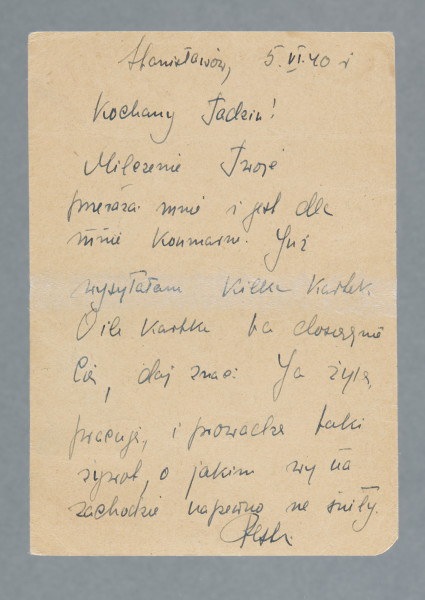 Stanisławów, 5.VI.40 r
Kochany Tadziu!
Milczenie Twoje
przeraża mnie i jest dla
mnie koszmarne. Już
wysyłałam kilka kartek.
O ile kartka ta dosięgnie
Cię, daj znać. Ja żyję,
pracuję, i prowadzę taki
żywot, o jakim wy na
zachodzie napewno nie śnili.